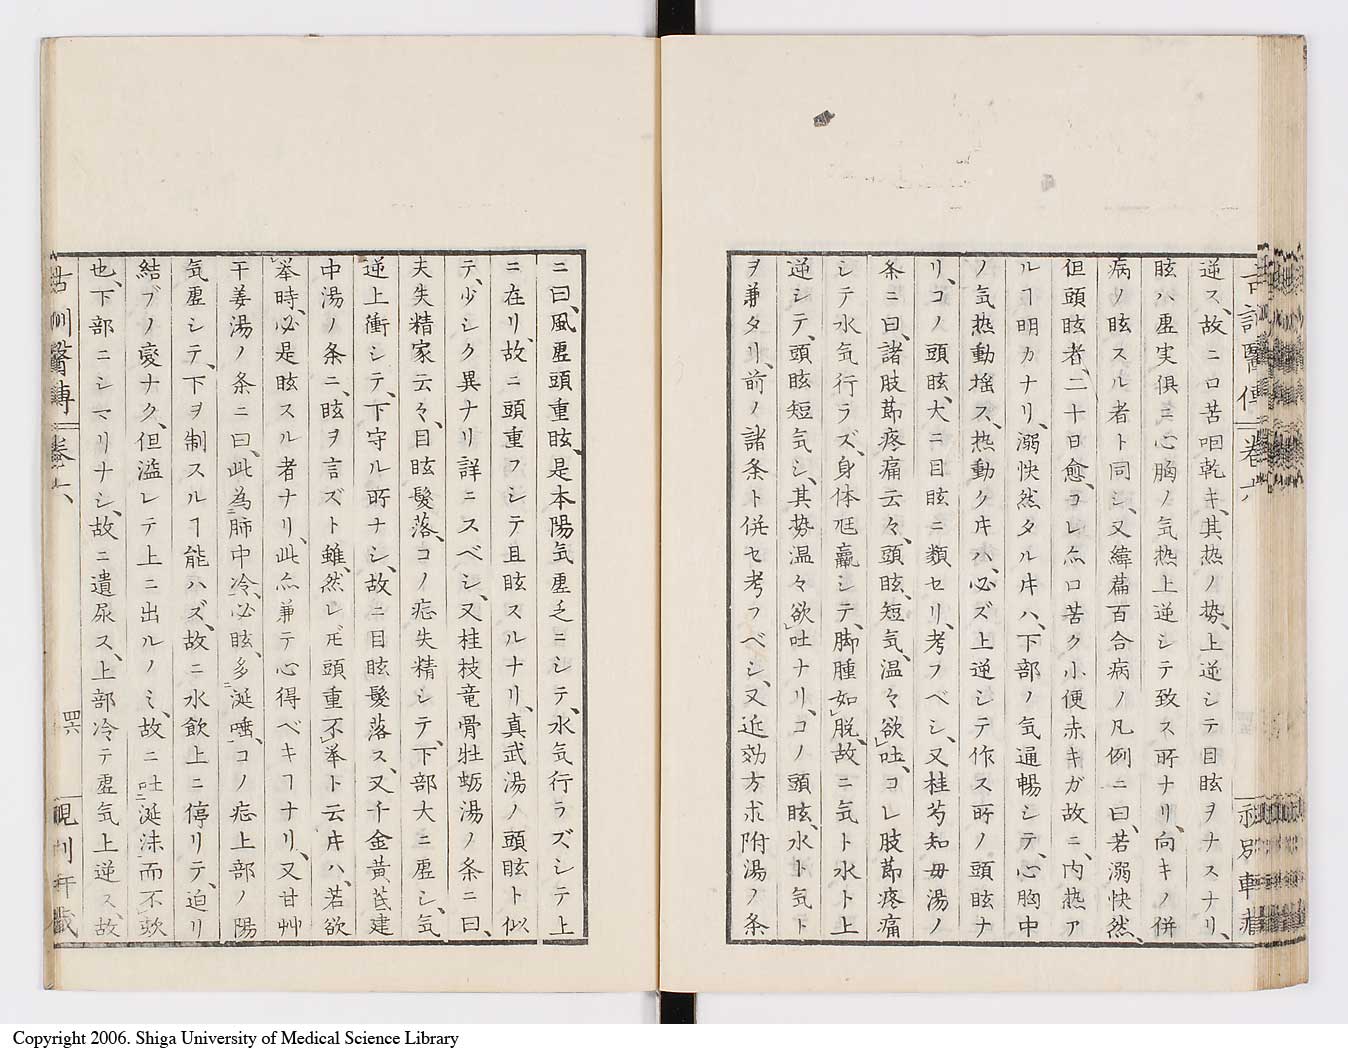 逆ス、故ニ口苦咽乾キ、其热ノ势、上逆シテ目眩ヲナスナリ、
眩ハ虚実俱ニ心胸ノ気热上逆シテ致ス所ナリ、向キノ併
病ノ眩スル者ト同シ、又緯萹百合病ノ凡例ニ曰、若溺快然、
但頭眩者、二十日愈、コレ灬口苦ク小便赤キガ故ニ、内热ア
ルヿ明カナリ、溺快然タル𪜈ハ、下部ノ気通暢シテ、心胸中
ノ気热動揺ス、热動クキハ、必ズ上逆シテ作ス所ノ頭眩ナ
リ、コノ頭眩、大ニ目眩ニ類セリ、考フベシ、又桂芍知毋湯ノ
条ニ曰、諸肢莭疼痛云々、頭眩、短気、温々欲吐、コレ肢莭疼痛
シテ水気行ラズ、身体尫羸シテ、脚腫如脱、故ニ気ト水ト上
逆シテ、頭眩短気シ、其势温々欲吐ナリ、コノ頭眩、水ト気ト
ヲ兼タリ、前ノ諸条ト併セ考フベシ、又近効方朮附湯ノ条
ニ曰、風虚頭重眩、是本陽気虚乏ニシテ、水気行ラズシテ上
ニ在リ、故ニ頭重フシテ且眩スルナリ、真武湯ノ頭眩ト似
テ、少シク異ナリ詳ニスベシ、又桂枝竜骨牡蛎湯ノ条ニ曰、
夫失精家云々、目眩髮落、コノ症失精シテ、下部大ニ虚シ、気
逆上衝シテ、下守ル所ナシ、故ニ目眩髮落ス、又千金黄芪建
中湯ノ条ニ、眩ヲ言ズト雖、然レ𪜈頭重不挙ト云キハ、若欲
挙時、必是眩スル者ナリ、此灬兼テ心得ベキヿナリ、又甘艸
干姜湯ノ条ニ曰、此為肺中冷、必眩、多涎唾、コノ症上部ノ陽
気虚シテ、下ヲ制スルヿ能ハズ、故ニ水飲上ニ停リテ、迫リ
結ブノ変ナク、但溢レテ上ニ出ルノミ、故ニ吐涎沫而不欬
也、下部ニシマリナシ、故ニ遺尿ス、上部冷テ虚気上逆ス、故
古訓醫傳 卷六
四六